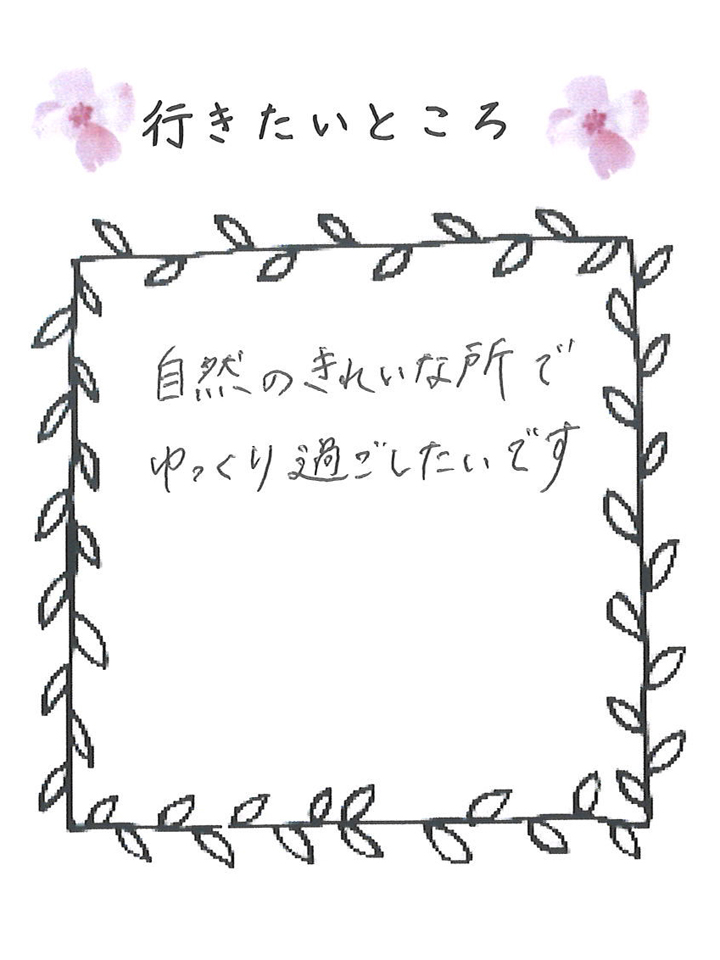 行きたいところ
自然のきれいな所で
ゆっくり過ごしたいです